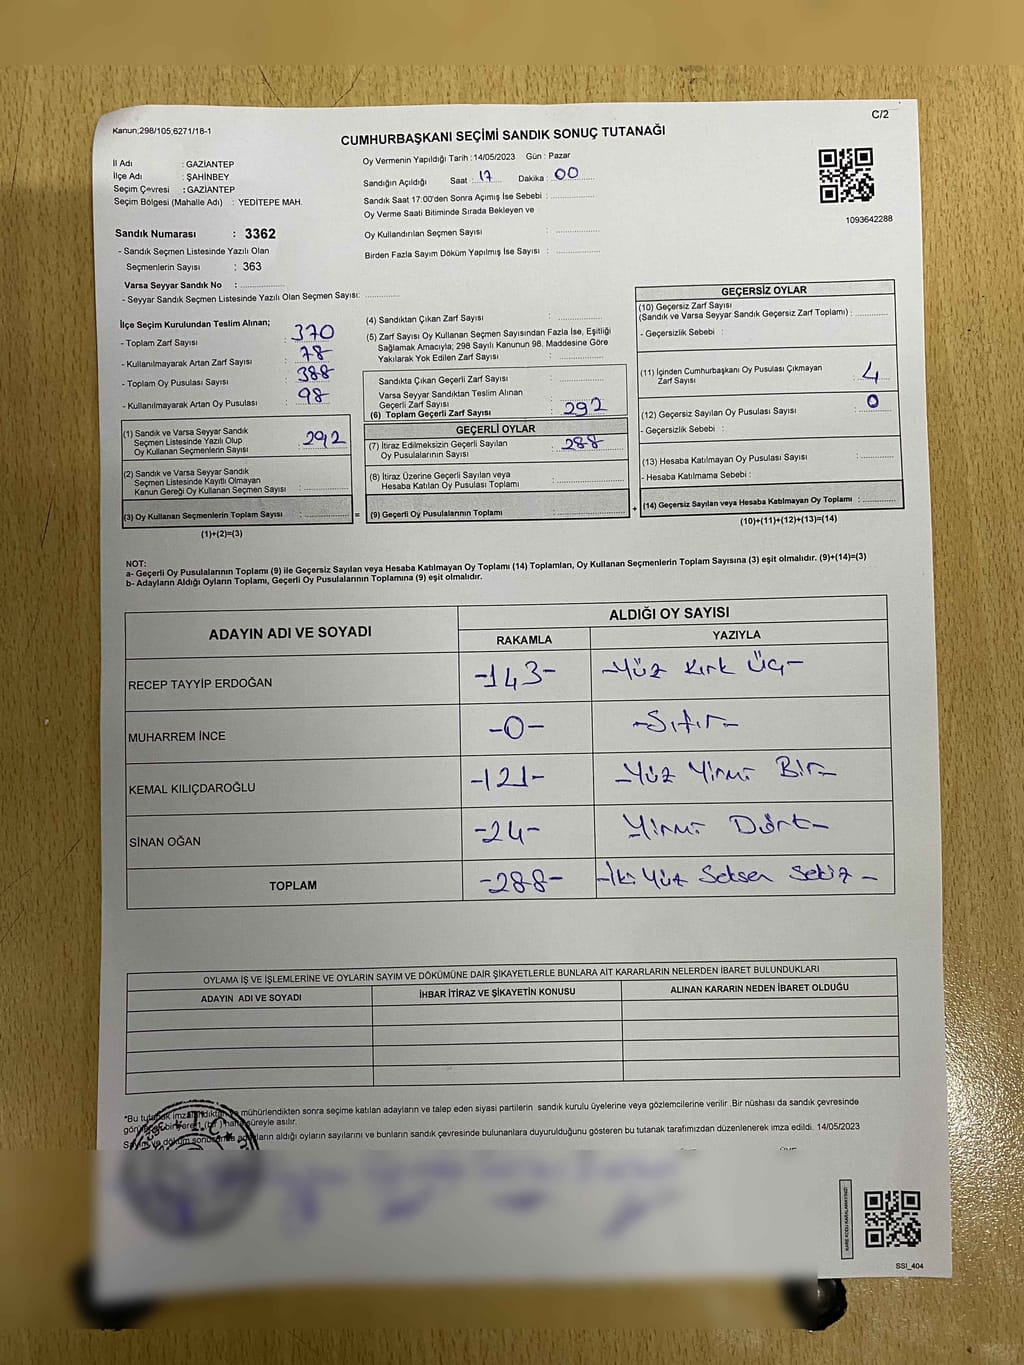 Kanun;298/105;6271/18-1
C/2
CUMHURBAŞKANI SEÇİMİ SANDIK SONUÇ TUTANAĞI
İl Adı : GAZİANTEP
İlçe Adı : ŞAHİNBEY
Seçim Çevresi : GAZİANTEP
Seçim Bölgesi (Mahalle Adı) : YEDİTEPE MAH.
Sandık Numarası : 3362
- Sandık Seçmen Listesinde Yazılı Olan
Seçmenlerin Sayısı : 363
Varsa Seyyar Sandık No :
- Seyyar Sandık Seçmen Listesinde Yazılı Olan Seçmen Sayısı:
Oy Vermenin Yapıldığı Tarih : 14/05/2023 Gün : Pazar
Sandığın Açıldığı Saat : 17 Dakika : 00
Sandık Saat 17:00'den Sonra Açımış İse Sebebi :
Oy Verme Saati Bitiminde Sırada Bekleyen ve
Oy Kullandırılan Seçmen Sayısı :
Birden Fazla Sayım Döküm Yapılmış İse Sayısı :
1093642288
İlçe Seçim Kurulundan Teslim Alınan;
- Toplam Zarf Sayısı : 370
- Kullanılmayarak Artan Zarf Sayısı : 78
- Toplam Oy Pusulası Sayısı : 388
- Kullanılmayarak Artan Oy Pusulası : 98
(1) Sandık ve Varsa Seyyar Sandık
Seçmen Listesinde Yazılı Olup
Oy Kullanan Seçmenlerin Sayısı : 292
(2) Sandık ve Varsa Seyyar Sandık
Seçmen Listesinde Kayıtlı Olmayan
Kanun Gereği Oy Kullanan Seçmen Sayısı :
(3) Oy Kullanan Seçmenlerin Toplam Sayısı : =
(1)+(2)=(3)
(4) Sandıktan Çıkan Zarf Sayısı :
(5) Zarf Sayısı Oy Kullanan Seçmen Sayısından Fazla İse, Eşitliği
Sağlamak Amacıyla; 298 Sayılı Kanunun 98. Maddesine Göre
Yakılarak Yok Edilen Zarf Sayısı :
Sandıkta Çıkan Geçerli Zarf Sayısı :
Varsa Seyyar Sandıktan Teslim Alınan
Geçerli Zarf Sayısı :
(6) Toplam Geçerli Zarf Sayısı : 292
GEÇERLİ OYLAR
(7) İtiraz Edilmeksizin Geçerli Sayılan
Oy Pusulalarının Sayısı : 288
(8) İtiraz Üzerine Geçerli Sayılan veya
Hesaba Katılan Oy Pusulası Toplamı :
(9) Geçerli Oy Pusulalarının Toplamı : +
GEÇERSİZ OYLAR
(10) Geçersiz Zarf Sayısı
(Sandık ve Varsa Seyyar Sandık Geçersiz Zarf Toplamı) :
- Geçersizlik Sebebi :
(11) İçinden Cumhurbaşkanı Oy Pusulası Çıkmayan
Zarf Sayısı : 4
(12) Geçersiz Sayılan Oy Pusulası Sayısı : 0
- Geçersizlik Sebebi :
(13) Hesaba Katılmayan Oy Pusulası Sayısı :
- Hesaba Katılmama Sebebi :
(14) Geçersiz Sayılan veya Hesaba Katılmayan Oy Toplamı :
(10)+(11)+(12)+(13)=(14)
NOT:
a- Geçerli Oy Pusulalarının Toplamı (9) ile Geçersiz Sayılan veya Hesaba Katılmayan Oy Toplamı (14) Toplamları, Oy Kullanan Seçmenlerin Toplam Sayısına (3) eşit olmalıdır. (9)+(14)=(3)
b- Adayların Aldığı Oyların Toplamı, Geçerli Oy Pusulalarının Toplamına (9) eşit olmalıdır.
ADAYIN ADI VE SOYADI ALDIĞI OY SAYISI
RAKAMLA YAZIYLA
RECEP TAYYİP ERDOĞAN -143- -Yüz Kırk Üç-
MUHARREM İNCE -0- -Sıfır-
KEMAL KILIÇDAROĞLU -121- -Yüz Yirmi Bir-
SİNAN OĞAN -24- Yirmi Dört-
TOPLAM -288- -İki Yüz Seksen Sekiz-
OYLAMA İŞ VE İŞLEMLERİNE VE OYLARIN SAYIM VE DÖKÜMÜNE DAİR ŞİKAYETLERLE BUNLARA AİT KARARLARIN NELERDEN İBARET BULUNDUKLARI
ADAYIN ADI VE SOYADI İHBAR İTİRAZ VE ŞİKAYETİN KONUSU ALINAN KARARIN NEDEN İBARET OLDUĞU
*Bu tutanak imzalandıktan ve mühürlendikten sonra seçime katılan adayların ve talep eden siyasi partilerin sandık kurulu üyelerine veya gözlemcilerine verilir .Bir nüshası da sandık çevresinde
görülebilen bir yere 1 (bir) hafta süreyle asılır.
Sayım ve döküm sonucunda adayların aldığı oyların sayılarını ve bunların sandık çevresinde bulunanlara duyurulduğunu gösteren bu tutanak tarafımızdan düzenlenerek imza edildi. 14/05/2023
SSI_404